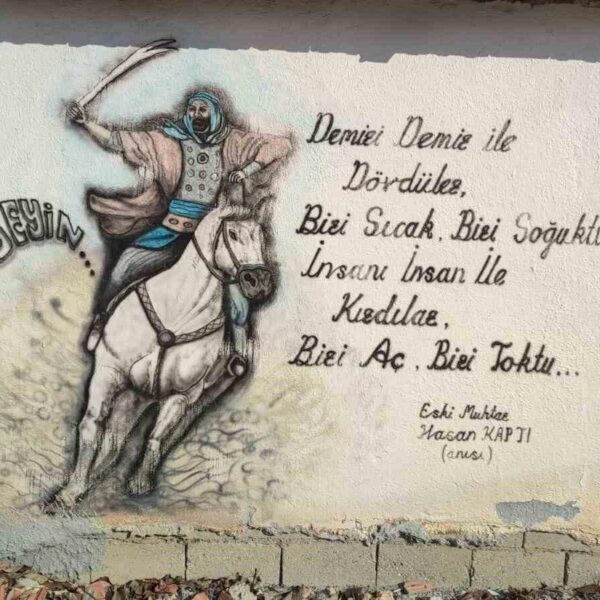 EYİN...
Demiri Demir ile
Dördüler,
Biri Sıcak, Biri Soğuktu
İnsanı İnsan İle
Kırdılar,
Biri Aç, Biri Toktu...
Eski Muhtar
Hasan KAPTI
(anısı)